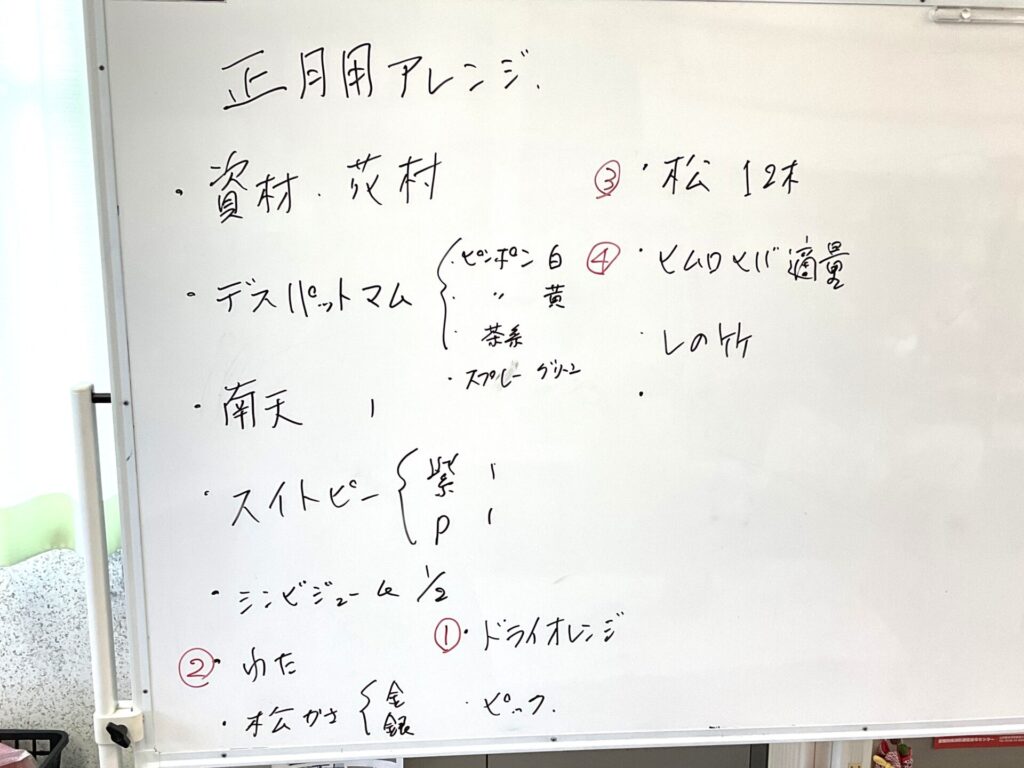 正月用アレンジ.
・資材.花材
・デスパットマム
・ピンポン 白
・ 〃 黄
・ 茶系
・スプレー グリーン
・南天 1
・スイトピー
紫 1
P 1
・シンビジューム 1/2
② ・わた
・松かさ 金 銀
① ・ドライオレンジ
・ピック.
③ ・松 12本
④ ・ヒムロヒバ 適量
・しの竹
・